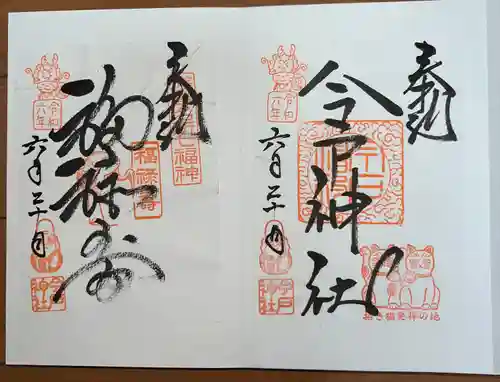 奉拝
今戸神社
令和
六年
六月二十日
今戸
神社
招き猫発祥の地
奉拝
福禄寿
七福神
福禄寿
令和
六年
六月二十日
今戸
神社